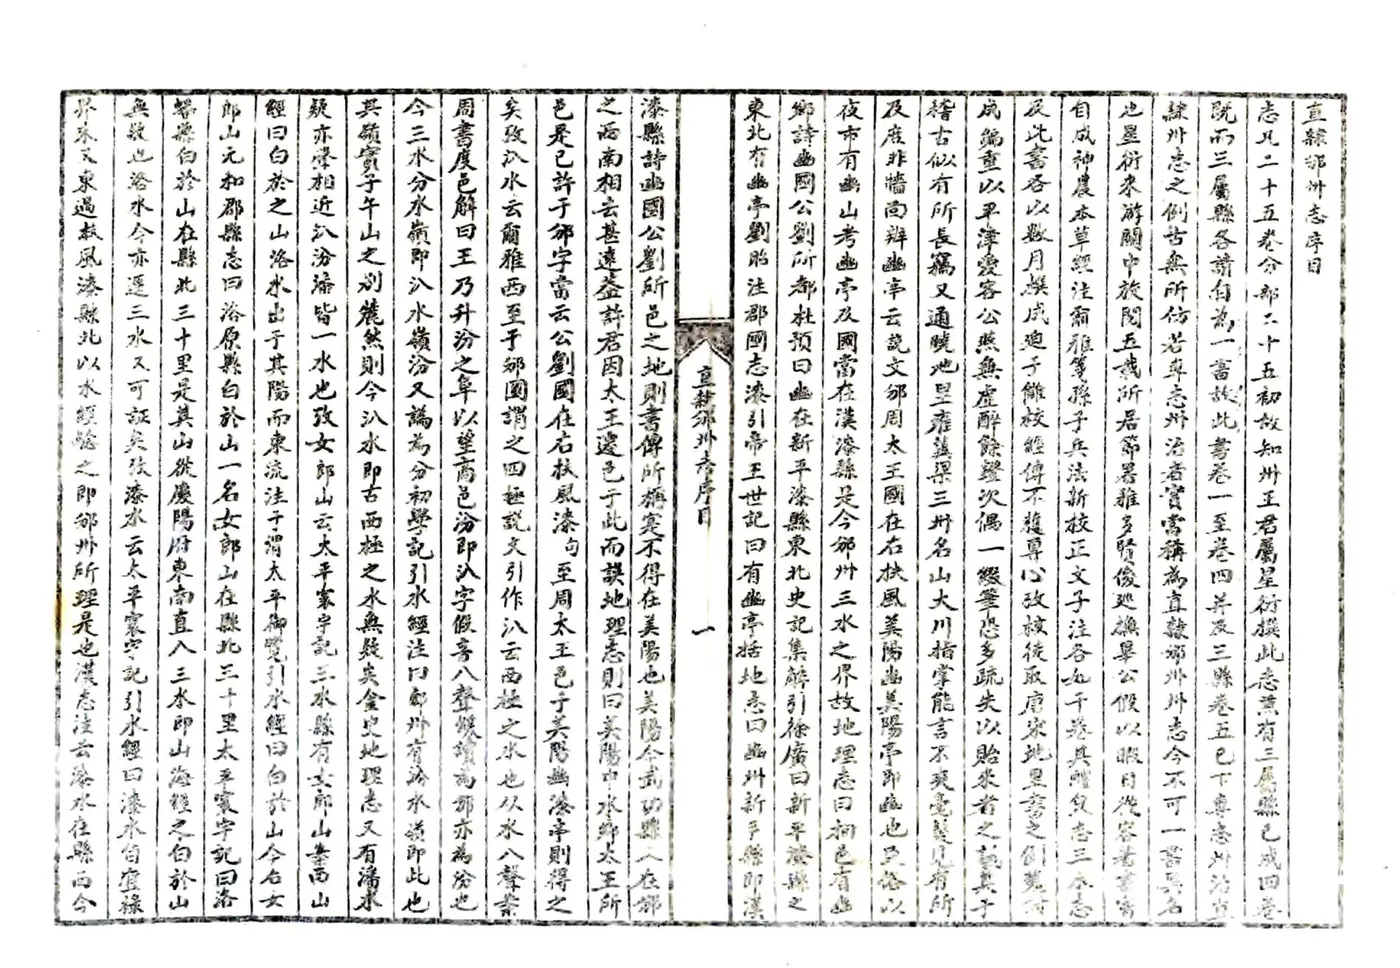 直隸邠州志序目
志凡二十五卷分部二十五初故知州王君屬星衍撰此志兼有三屬縣已成四卷
既而三屬縣各請自為一書故此書卷一至卷四并及三縣卷五已下專志州治直
隸州志之例古無所仿若專志州治者實當稱為直隸邠州州志今不可一書異名
也星衍來游關中旅閱五載所居節署雅多賢俊巡撫畢公假以暇日從容著書嘗
自成神農本草經注爾雅箋孫子兵法新校正文子注各如干卷其醴泉志三水志
及此書各以數月撰成迫于讎校經傳不復專心攷核徒取唐宋地里書之例
成編重以平津愛客公燕無虛醉餘鐙次偶一綴筆恐多疏失以貽來者之 其于
稽古似有所長竊又通曉地里雍冀梁三州名山大川指掌能言不爽毫髮見有所
及度非牆尚辨豳亭云說文邠周太王國在右扶風美陽豳美陽亭即豳也民俗以
夜市有豳山考豳亭及國當在漢漆縣是今邠州三水之界故地理志曰栒邑有豳
鄉詩豳國公劉所都杜預曰豳在新平漆縣東北史記集解引徐廣曰新平漆縣之
東北有豳亭劉昭注郡國志漆引帝王世記曰有豳亭括地志曰豳州新平縣即漢
直隸邠州志序目
一
漆縣詩豳國公劉所邑之地則書傳所稱寔不得在美陽也美陽今武功縣 在邠
之西南相去甚遠蓋許君因太王遷邑于此而誤地理志則曰美陽中水鄉太王所
邑是已許于邠字當云公劉國在右扶風漆句至周太王邑于美陽豳漆亭則得之
矣攷汃水云爾雅西至于邠國謂之四極說文引作汃云西極之水也从水八聲案
周書度邑解曰王乃升汾之阜以望商邑汾即汃字假音八聲緩讀為邠亦為汾也
今三水分水嶺即汃水嶺汾又譌為分初學記引水經注曰邠州有汾水嶺即此也
其嶺實子午山之别麓然則今汃水即古西極之水無疑矣金史地理志又有潘水
疑亦聲相近汃汾潘皆一水也攷女郎山云太平寰宇記三水縣有女郎山案西山
經曰白於之山洛水出于其陽而東流注于渭太平御覽引水經曰白於山今名女
郎山元和郡縣志曰洛原縣白於山一名女郎山在縣北三十里太平寰宇記曰洛
蟠縣白於山在縣北三十里是其山從慶陽府東南直入三水即山海經之白於山
無疑也洛水今亦逕三水又可証矣攷漆水云太平寰宇記引水經曰漆水自宜祿
界來又東過扶風漆縣北以水經騐之即邠州所理是也漢志注云漆水在縣西今